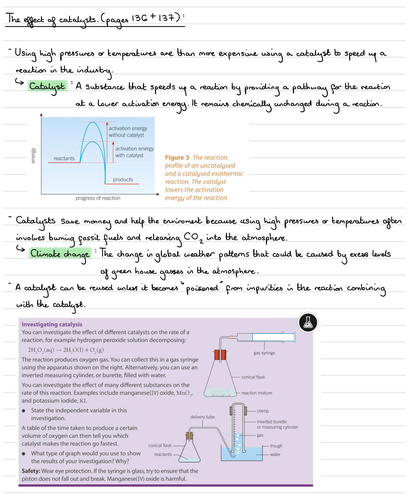 The effect of catalysts. (pages 136 + 137) :
- Using high pressures or temperatures are than more expensive using a catalyst to speed up a
reaction in the industry.
↳ Catalyst : A substance that speeds up a reaction by providing a pathway for the reaction
at a lower activation energy. It remains chemically unchanged during a reaction.
energy
reactants
activation energy
without catalyst
activation energy
with catalyst
products
progress of reaction
Figure 3 The reaction
profile of an uncatalysed
and a catalysed exothermic
reaction. The catalyst
lowers the activation
energy of the reaction
- Catalysts save money and help the enviroment because using high pressures or temperatures often
involves burning fossil fuels and releasing CO₂ into the atmosphere.
↳ Climate change : The change in global weather patterns that could be caused by excess levels
of green house gasses in the atmosphere.
- A catalyst can be reused unless it becomes "poisoned" from impurities in the reaction combining
with the catalyst.
Investigating catalysis
You can investigate the effect of different catalysts on the rate of a
reaction, for example hydrogen peroxide solution decomposing:
2H₂O₂(aq) → 2H₂O(l) + O₂(g)
The reaction produces oxygen gas. You can collect this in a gas syringe
using the apparatus shown on the right. Alternatively, you can use an
inverted measuring cylinder, or burette, filled with water.
You can investigate the effect of many different substances on the
rate of this reaction. Examples include manganese(IV) oxide, MnO₂,
and potassium iodide, KI.
● State the independent variable in this
investigation.
A table of the time taken to produce a certain
volume of oxygen can then tell you which
catalyst makes the reaction go fastest.
● What type of graph would you use to show
the results of your investigation? Why?
Safety: Wear eye protection. If the syringe is glass, try to ensure that the
piston does not fall out and break. Manganese(IV) oxide is harmful.
gas syringe
conical flask
reaction mixture
delivery tube
clamp
inverted burette
or measuring cylinder
gas
trough
water
conical flask
reactants